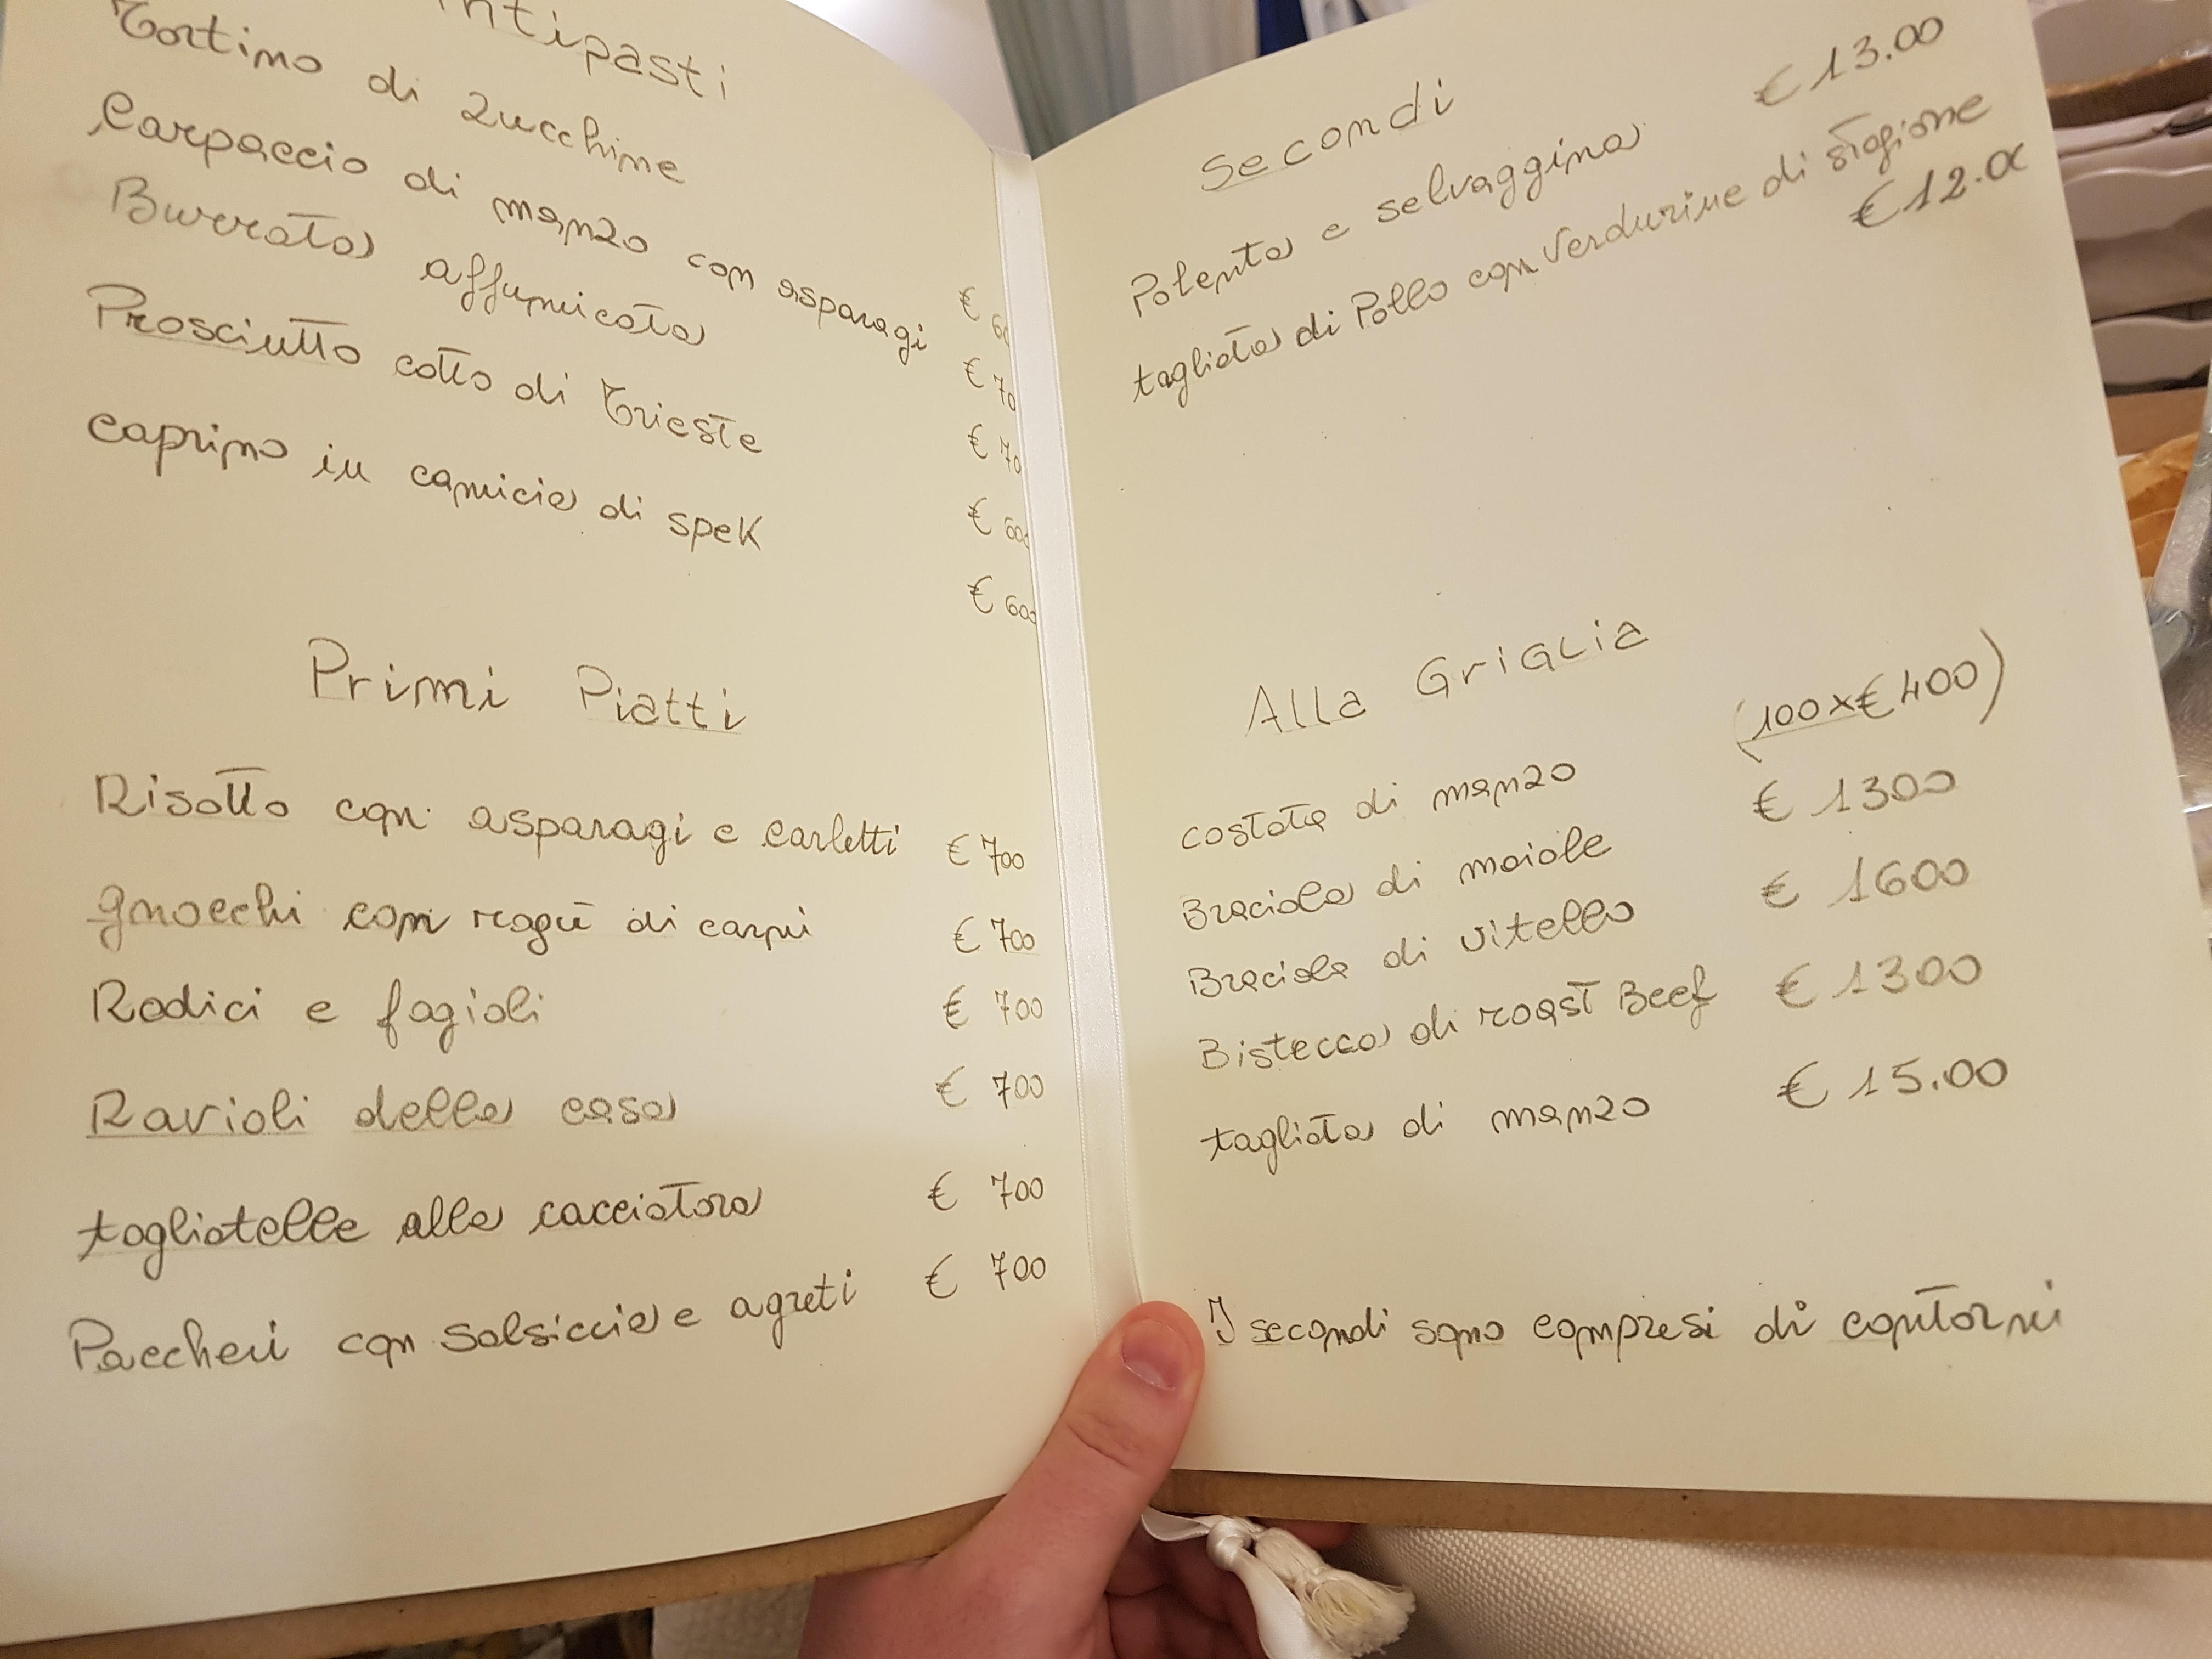 ntipasti
Tortino di zucchine
Carpaccio di manzo con asparagi € 60
Burrata affumicata € 70
Prosciutto cotto di Trieste € 70
Caprino in camicia di speK € 600
€ 600
Primi Piatti
Risotto con asparagi e carletti € 700
gnocchi con ragù di carni € 700
Radici e fagioli € 700
Ravioli della casa € 700
tagliatelle alla cacciatora € 700
Paccheri con salsiccia e agreti € 700
Secondi
Polenta e selvaggina € 13.00
tagliata di Pollo con verdurine di stagione
€ 12.00
Alla GriGLia
costata di manzo (100x€400)
Braciola di maiale € 1300
Braciola di vitello € 1600
Bistecca di roast Beef € 1300
tagliata di manzo € 15.00
I secondi sono compresi di contorni